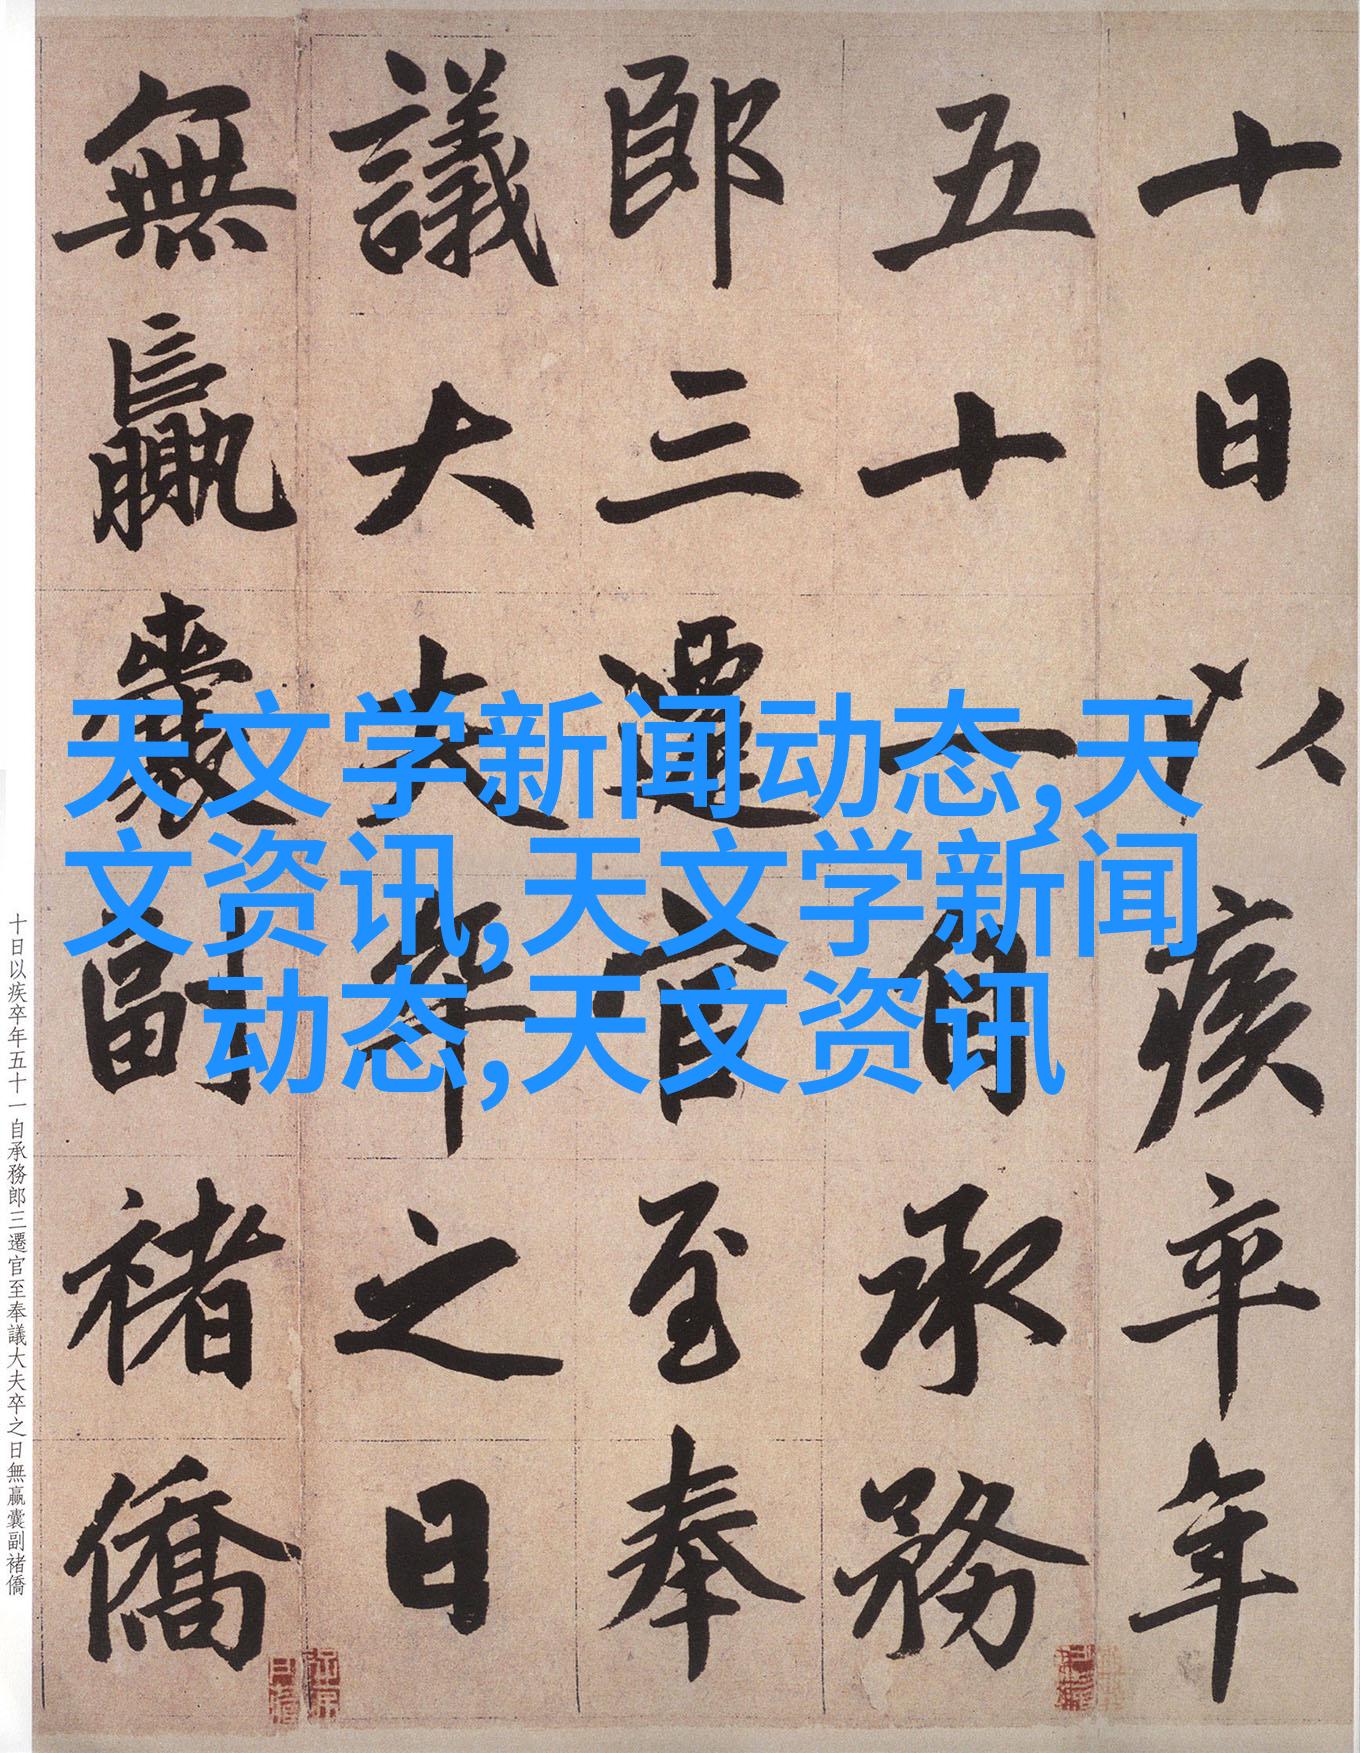 十日以疾卒年
五十一自承務
郎三遷官至奉
議大夫卒之日
無贏囊副褚僑
天文学新闻动态,天
文资讯,天文学新闻
动态,天文资讯
十日以疾卒年五十一自承務郎三遷官至奉議大夫卒之日無贏囊副褚僑